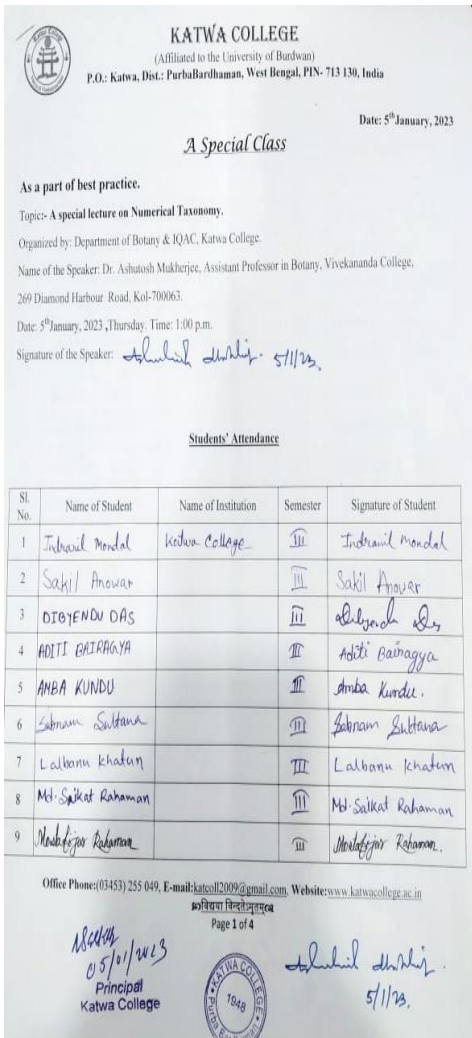 KATWA COLLEGE
(Affiliated to the University of Burdwan)
P.O.: Katwa, Dist.: PurbaBardhaman, West Bengal, PIN- 713 130, India
Date: 5th January, 2023
A Special Class
As a part of best practice.
Topic:- A special lecture on Numerical Taxonomy.
Organized by: Department of Botany & IQAC, Katwa College.
Name of the Speaker: Dr. Ashutosh Mukherjee, Assistant Professor in Botany, Vivekananda College,
269 Diamond Harbour Road, Kol-700063.
Date: 5th January, 2023 ,Thursday. Time: 1:00 p.m.
Signature of the Speaker: 5/1/23.
Students' Attendance
Sl. No. Name of Student Name of Institution Semester Signature of Student
1 Indranil Mondal Katwa College III Indranil Mondal
2 Sakil Anowar III Sakil Anowar
3 DIBYENDU DAS III Dibyendu Das
4 ADITI BAIRAGYA III Aditi Bairagya
5 AMBA KUNDU III Amba Kundu.
6 Sabnam Sultana III Sabnam Sultana
7 Lalbanu Khatun III Lalbanu Khatun
8 Md. Saikat Rahaman III Md. Saikat Rahaman
9 Mostafijar Rahaman III Mostafijar Rahaman.
Office Phone:(03453) 255 049, E-mail:katcoll2009@gmail.com, Website:www.katwacollege.ac.in
विद्यया विन्दतेऽमृतम्
Page 1 of 4
05/01/2023
Principal
Katwa College
KATWA COLLEGE
1948
5/1/23.